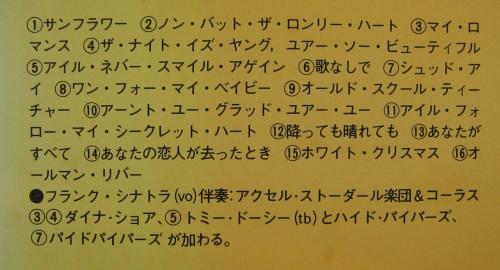 ①サンフラワー ②ノン・バット・ザ・ロンリー・ハート ③マイ・ロ
マンス ④ザ・ナイト・イズ・ヤング, ユアー・ソー・ビューティフル
⑤アイル・ネバー・スマイル・アゲイン ⑥歌なしで ⑦シュッド・ア
イ ⑧ワン・フォー・マイ・ベイビー ⑨オールド・スクール・ティー
チャー ⑩アーント・ユー・グラッド・ユアー・ユー ⑪アイル・フォ
ロー・マイ・シークレット・ハート ⑫降っても晴れても ⑬あなたが
すべて ⑭あなたの恋人が去ったとき ⑮ホワイト・クリスマス ⑯オ
ールマン・リバー
●フランク・シナトラ(vo)伴奏:アクセル・ストーダール楽団&コーラス
③④ダイナ・ショア、⑤トミー・ドーシー(tb)とハイド・パイパーズ、
⑦パイドパイパーズが加わる。